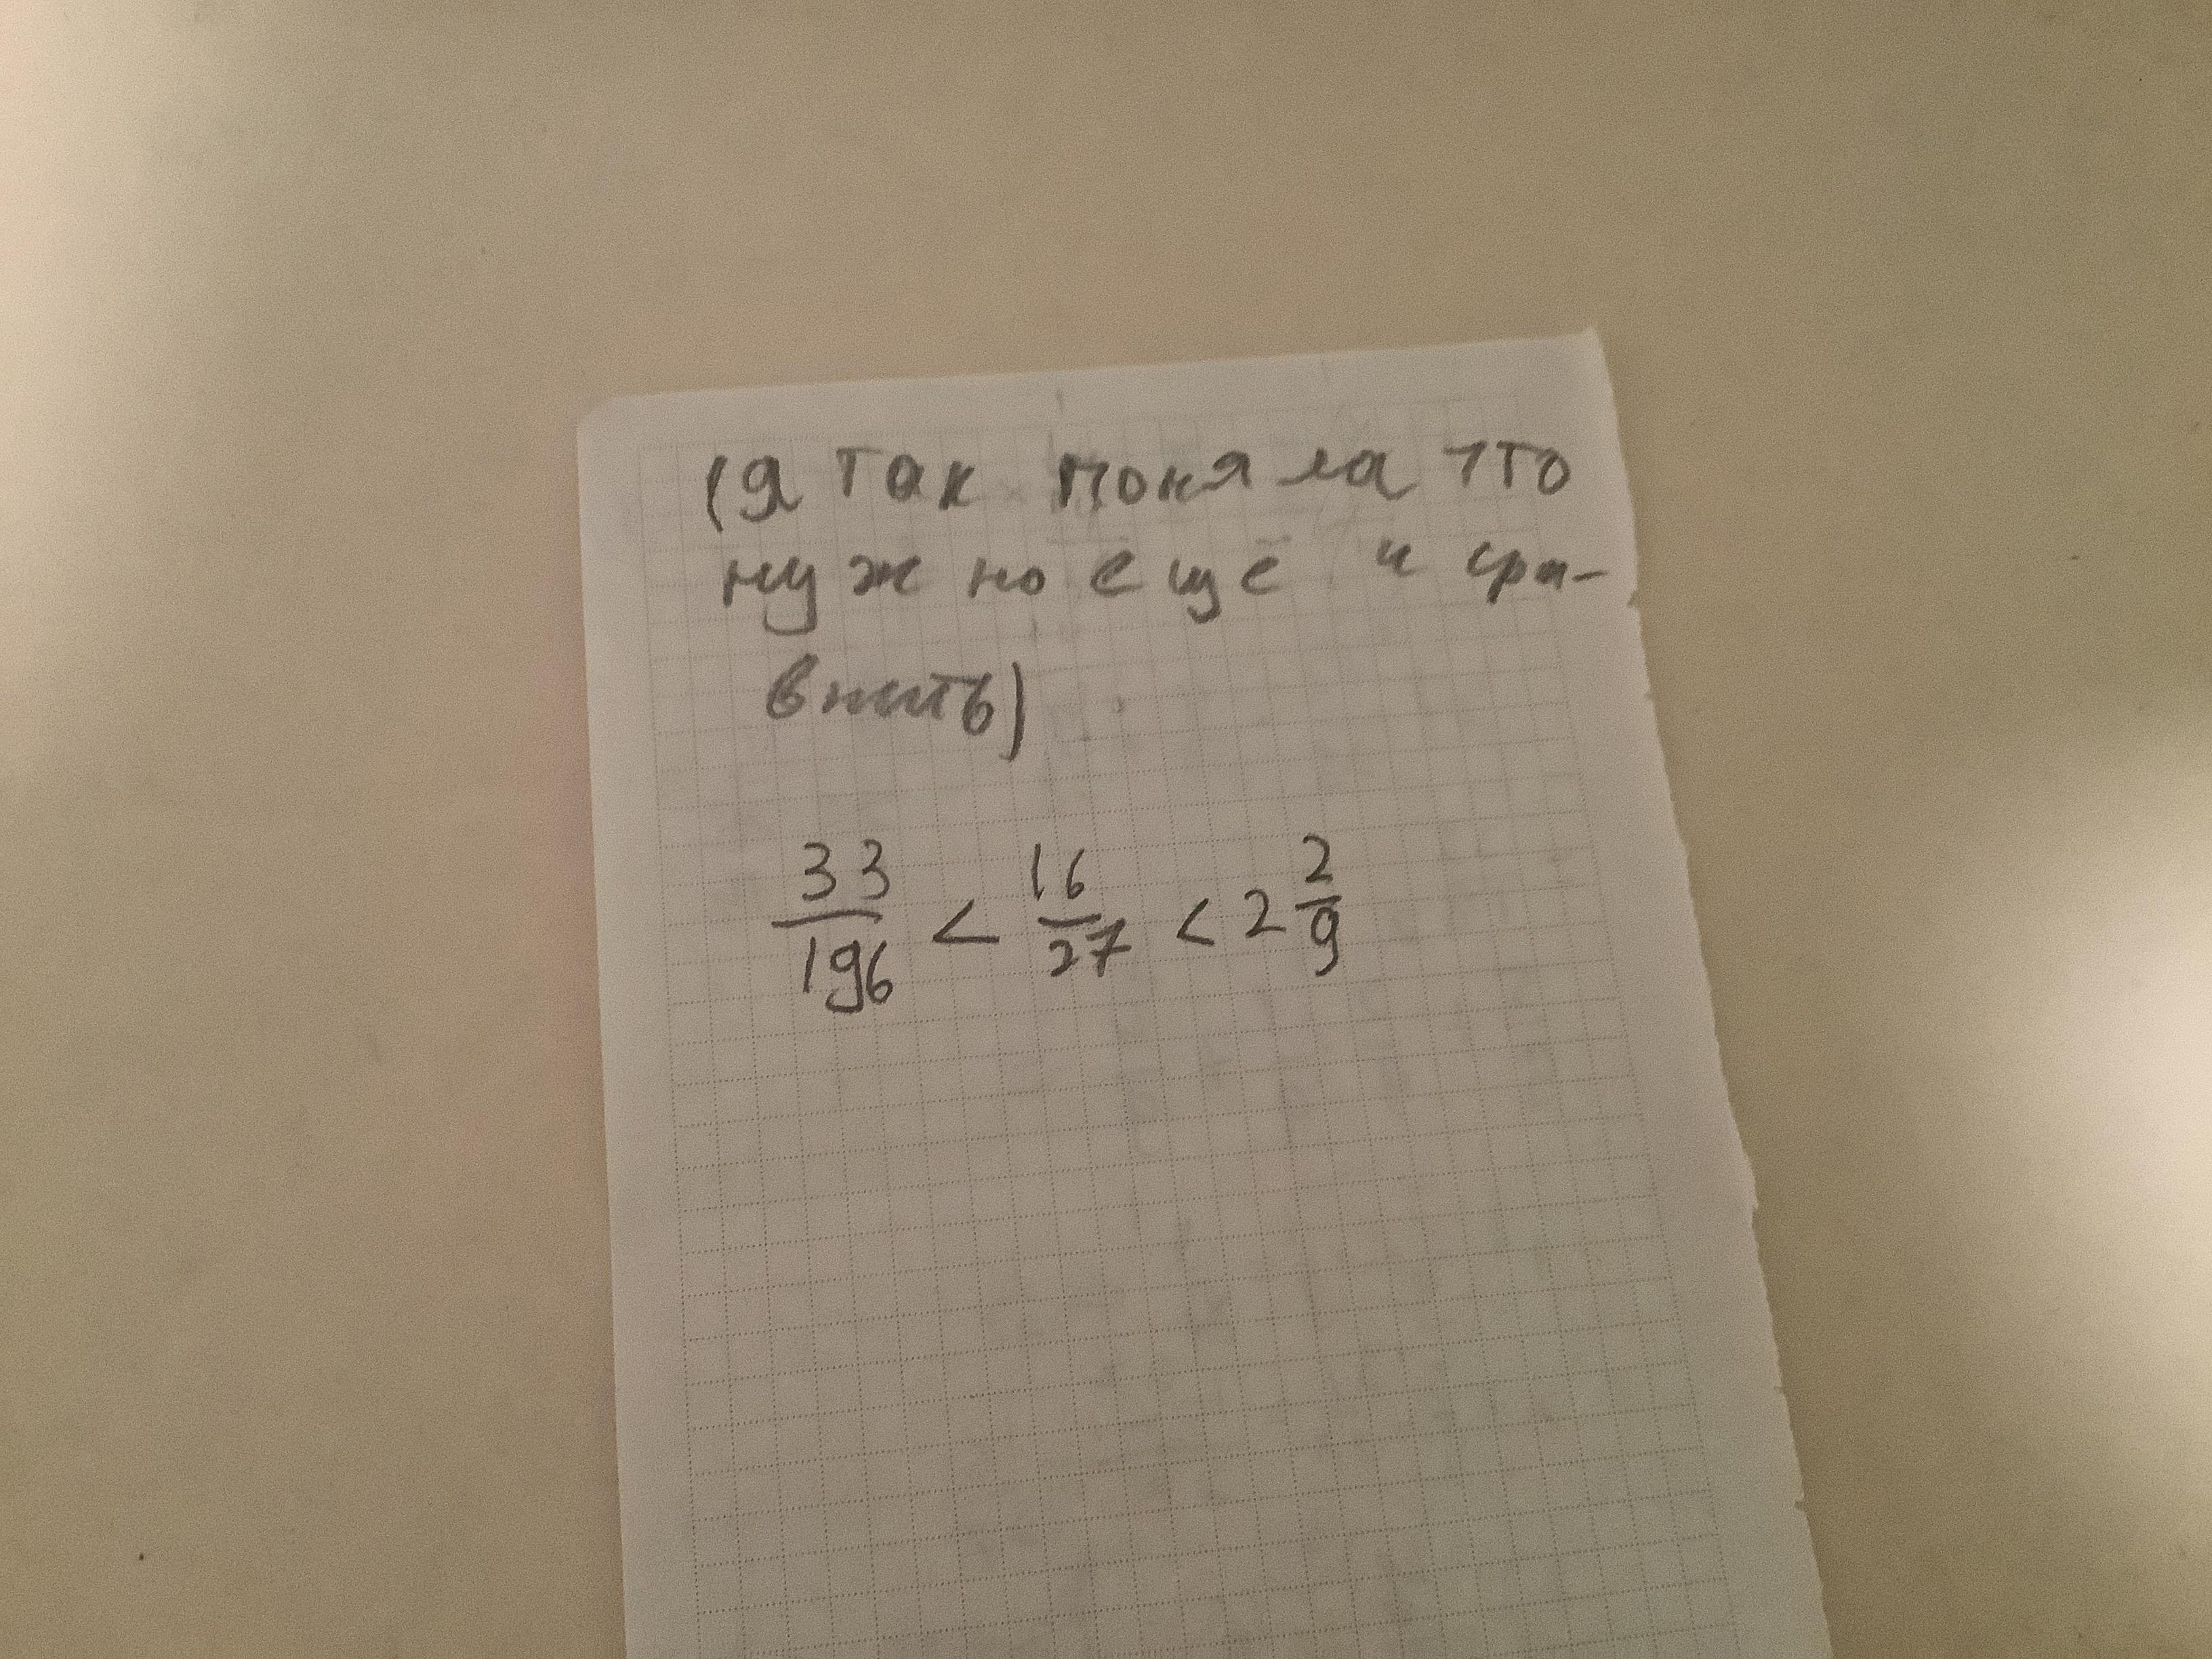 (я так поняла что
нужно ещё и сра-
внить)
33/196 < 16/27 < 2 2/9